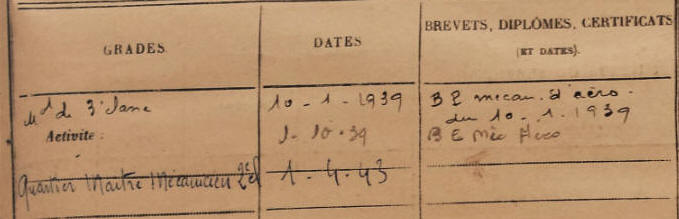 GRADES
DATES
BREVETS, DIPLÔMES, CERTIFICATS
(ET DATES).
Mt de 3e classe
10 - 1 - 1939
B E mecan. d'aéro.
du 10 - 1. 1939
Activité :
1 - 10 - 39
B E Méc Aéro
Quartier Maitre Mécanicien 2e cl
1 - 4 - 43